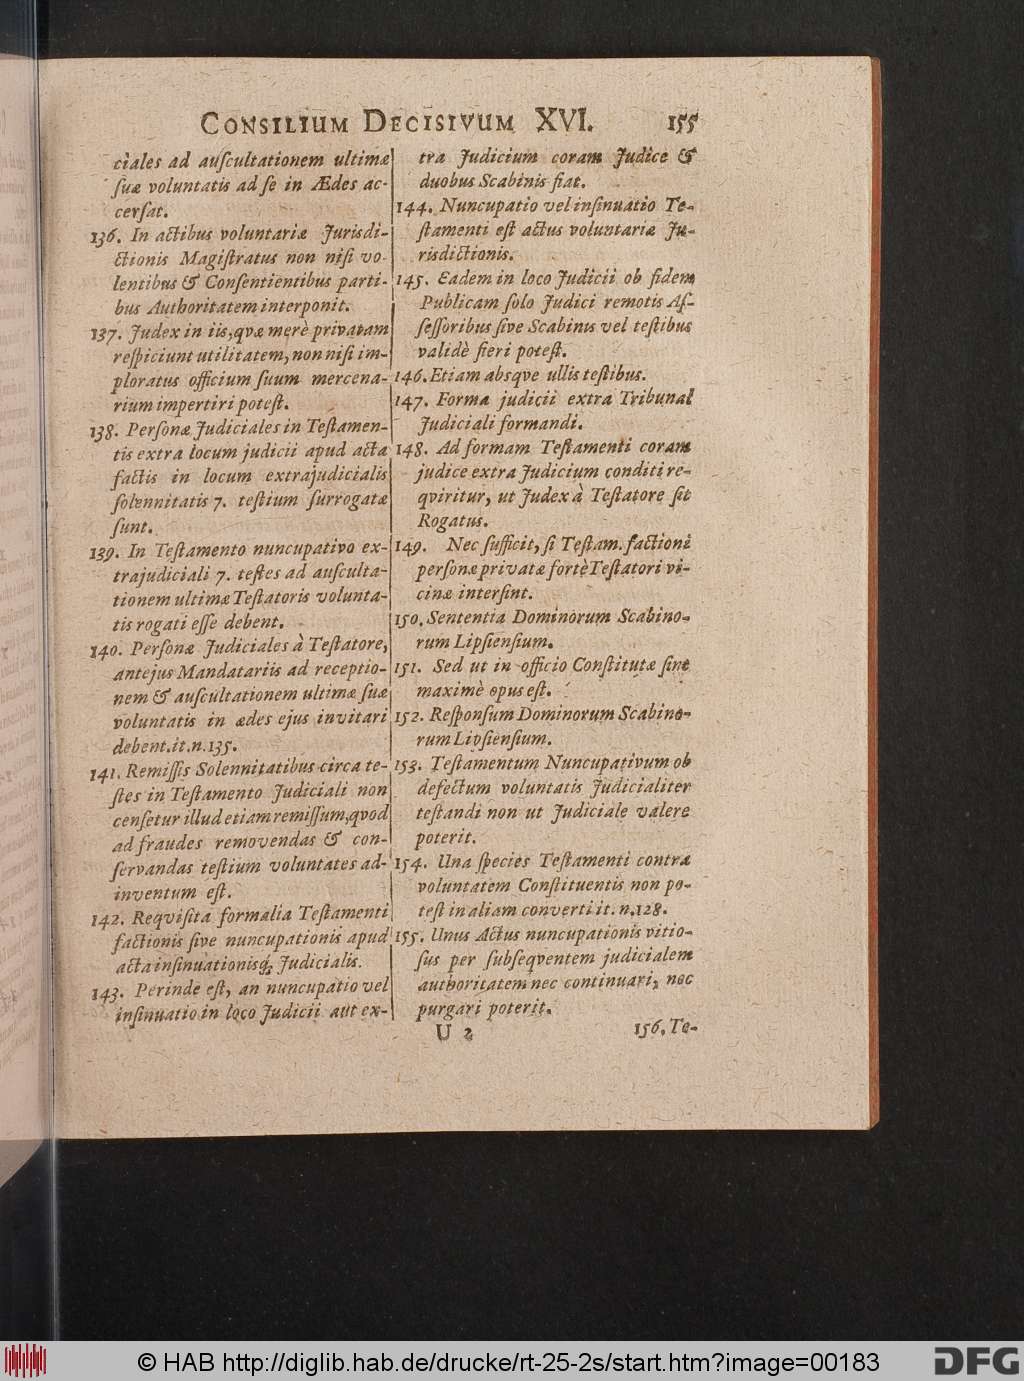 CONSILIUM DECISIVUM XVI. 155
ciales ad auſcultationem ultimæ
ſuæ voluntatis ad ſe in Ædes ac-
cerſat.
136. In actibus voluntariæ Jurisdi-
ctionis Magiſtratus non niſi vo-
lentibus & Conſentientibus parti-
bus Authoritatem interponit.
137. Judex in iis, qvæ merè privatam
reſpiciunt utilitatem, non niſi im-
ploratus officium ſuum mercena-
rium impertiri poteſt.
138. Perſonæ Judiciales in Teſtamen-
tis extra locum judicii apud acta
factis in locum extrajudicialis
ſolennitatis 7. teſtium ſurrogatæ
ſunt.
139. In Teſtamento nuncupativo ex-
trajudiciali 7. teſtes ad auſculta-
tionem ultimæ Teſtatoris volunta-
tis rogati eſſe debent.
140. Perſonæ Judiciales à Teſtatore,
antejus Mandatariis ad receptio-
nem & auſcultationem ultimæ ſuæ
voluntatis in ædes ejus invitari
debent. it. n. 135.
141. Remiſſis Solennitatibus circa te-
ſtes in Teſtamento Judiciali non
cenſetur illud etiam remiſſum, qvod
ad fraudes removendas & con-
ſervandas teſtium voluntates ad-
inventum eſt.
142. Reqviſita formalia Teſtamenti
factionis ſive nuncupationis apud
acta inſinuationisq́; Judicialis.
143. Perinde eſt, an nuncupatio vel
inſinuatio in loco Judicii aut ex-
tra Judicium coram Judice &
duobus Scabinis fiat.
144. Nuncupatio vel inſinuatio Te-
ſtamenti eſt actus voluntariæ Ju-
risdictionis.
145. Eadem in loco Judicii ob fidem
Publicam ſolo Judici remotis Aſ-
ſeſſoribus ſive Scabinus vel teſtibus
validè fieri poteſt.
146. Etiam absqve ullis teſtibus.
147. Forma judicii extra Tribunal
Judiciali formandi.
148. Ad formam Teſtamenti coram
judice extra Judicium conditi re-
qviritur, ut Judex à Teſtatore ſit
Rogatus.
149. Nec ſufficit, ſi Teſtam. factioni
perſonæ privatæ fortè Teſtatori vi-
cinæ interſint.
150. Sententia Dominorum Scabino-
rum Lipſienſium.
151. Sed ut in officio Conſtitutæ ſint
maximè opus eſt.
152. Reſponſum Dominorum Scabino-
rum Lipſienſium.
153. Teſtamentum Nuncupativum ob
defectum voluntatis Judicialiter
teſtandi non ut Judiciale valere
poterit.
154. Una ſpecies Teſtamenti contra
voluntatem Conſtituentis non po-
teſt in aliam converti it. n. 128.
155. Unus Actus nuncupationis vitio-
ſus per ſubſeqventem judicialem
authoritatem nec continuari, nec
purgari poterit.
U 2 156. Te-
© HAB http://diglib.hab.de/drucke/rt-25-2s/start.htm?image=00183 DFG